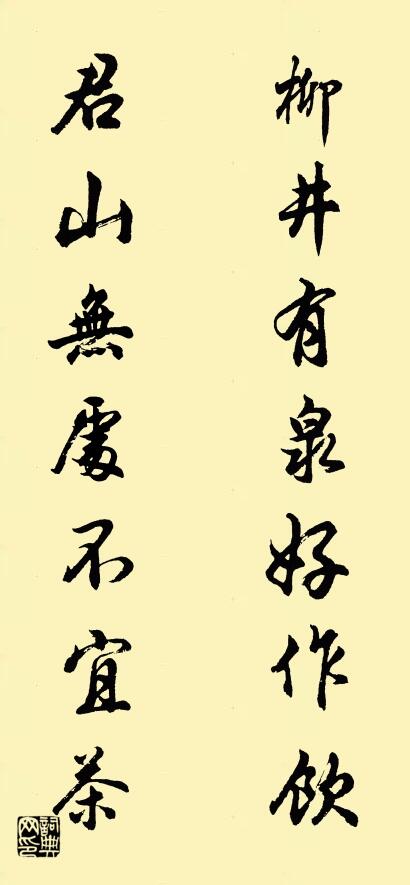 柳井有泉好作飲
君山無處不宜茶
詞典网印